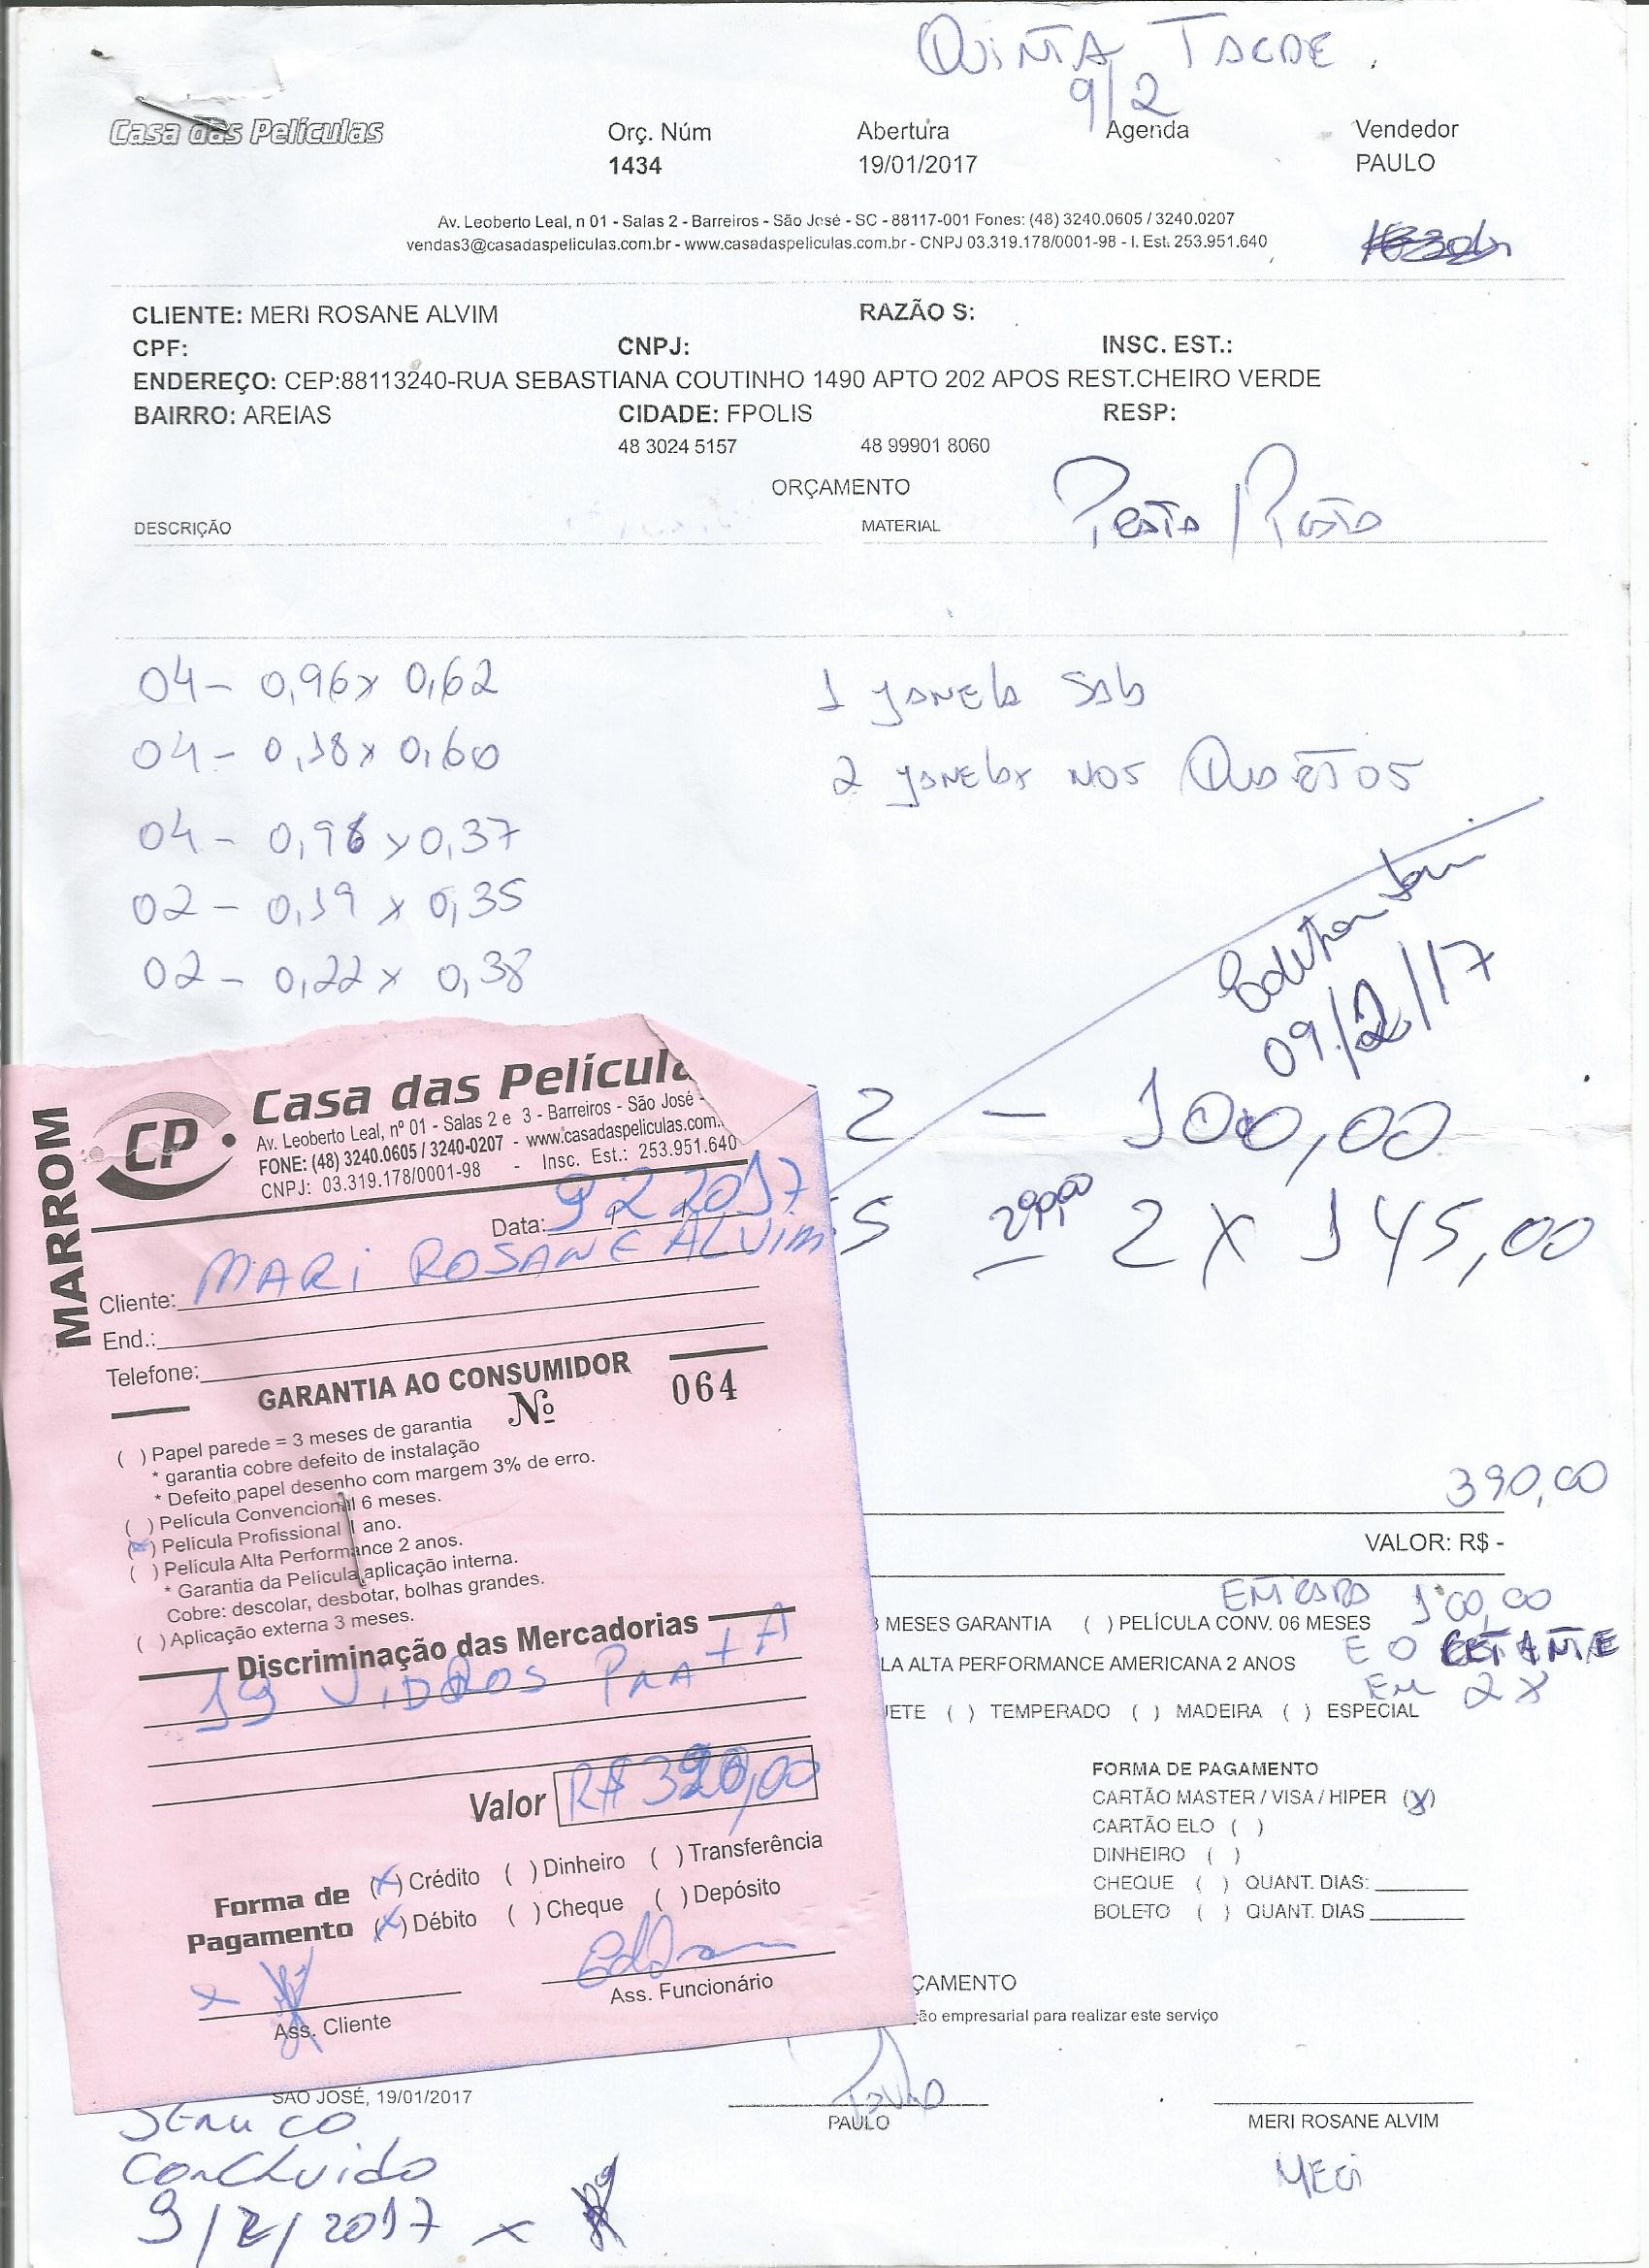 QUINTA TARDE.
9/2
Casa das Películas
Orç. Núm Abertura Agenda Vendedor
1434 19/01/2017 PAULO
Av. Leoberto Leal, n 01 - Salas 2 - Barreiros - São José - SC - 88117-001 Fones: (48) 3240.0605 / 3240.0207
vendas3@casadaspeliculas.com.br - www.casadaspeliculas.com.br - CNPJ 03.319.178/0001-98 - I. Est. 253.951.640
CLIENTE: MERI ROSANE ALVIM RAZÃO S:
CPF: CNPJ: INSC. EST.:
ENDEREÇO: CEP:88113240-RUA SEBASTIANA COUTINHO 1490 APTO 202 APOS REST.CHEIRO VERDE
BAIRRO: AREIAS CIDADE: FPOLIS RESP:
48 3024 5157 48 99901 8060
ORÇAMENTO
DESCRIÇÃO MATERIAL
04 - 0,96 x 0,62
04 - 0,18 x 0,60
04 - 0,98 x 0,37
02 - 0,19 x 0,35
02 - 0,22 x 0,38
1 janela Sala
2 janelas nos Quartos
09/2/17
2 - 100,00
5 290,00 2 x 145,00
390,00
VALOR: R$ -
ENTRADA 100,00
MESES GARANTIA ( ) PELÍCULA CONV. 06 MESES
E O RESTANTE
LA ALTA PERFORMANCE AMERICANA 2 ANOS
EM 2X
ETE ( ) TEMPERADO ( ) MADEIRA ( ) ESPECIAL
FORMA DE PAGAMENTO
CARTÃO MASTER / VISA / HIPER (X)
CARTÃO ELO ( )
DINHEIRO ( )
CHEQUE ( ) QUANT. DIAS:
BOLETO ( ) QUANT. DIAS
ÇAMENTO
ção empresarial para realizar este serviço
MARROM
CP
Casa das Películ
Av. Leoberto Leal, nº 01 - Salas 2 e 3 - Barreiros - São José -
FONE: (48) 3240.0605 / 3240-0207 - www.casadaspeliculas.com.
CNPJ: 03.319.178/0001-98 - Insc. Est.: 253.951.640
Data: 9 2 2017
Cliente: MARI ROSANE ALVIM
End.:
Telefone:
GARANTIA AO CONSUMIDOR
Nº 064
( ) Papel parede = 3 meses de garantia
* garantia cobre defeito de instalação
* Defeito papel desenho com margem 3% de erro.
( ) Película Convencional 6 meses.
(x) Película Profissional 1 ano.
( ) Película Alta Performance 2 anos.
* Garantia da Película aplicação interna.
Cobre: descolar, desbotar, bolhas grandes.
( ) Aplicação externa 3 meses.
Discriminação das Mercadorias
19 VIDROS PRATA
Valor R$ 390,00
Forma de Pagamento
(X) Crédito ( ) Dinheiro ( ) Transferência
(X) Débito ( ) Cheque ( ) Depósito
Ass. Cliente Ass. Funcionário
SÃO JOSÉ, 19/01/2017
Paulo
PAULO MERI ROSANE ALVIM
MERI
SERVICO
CONCLUIDO
9/2/2017 x